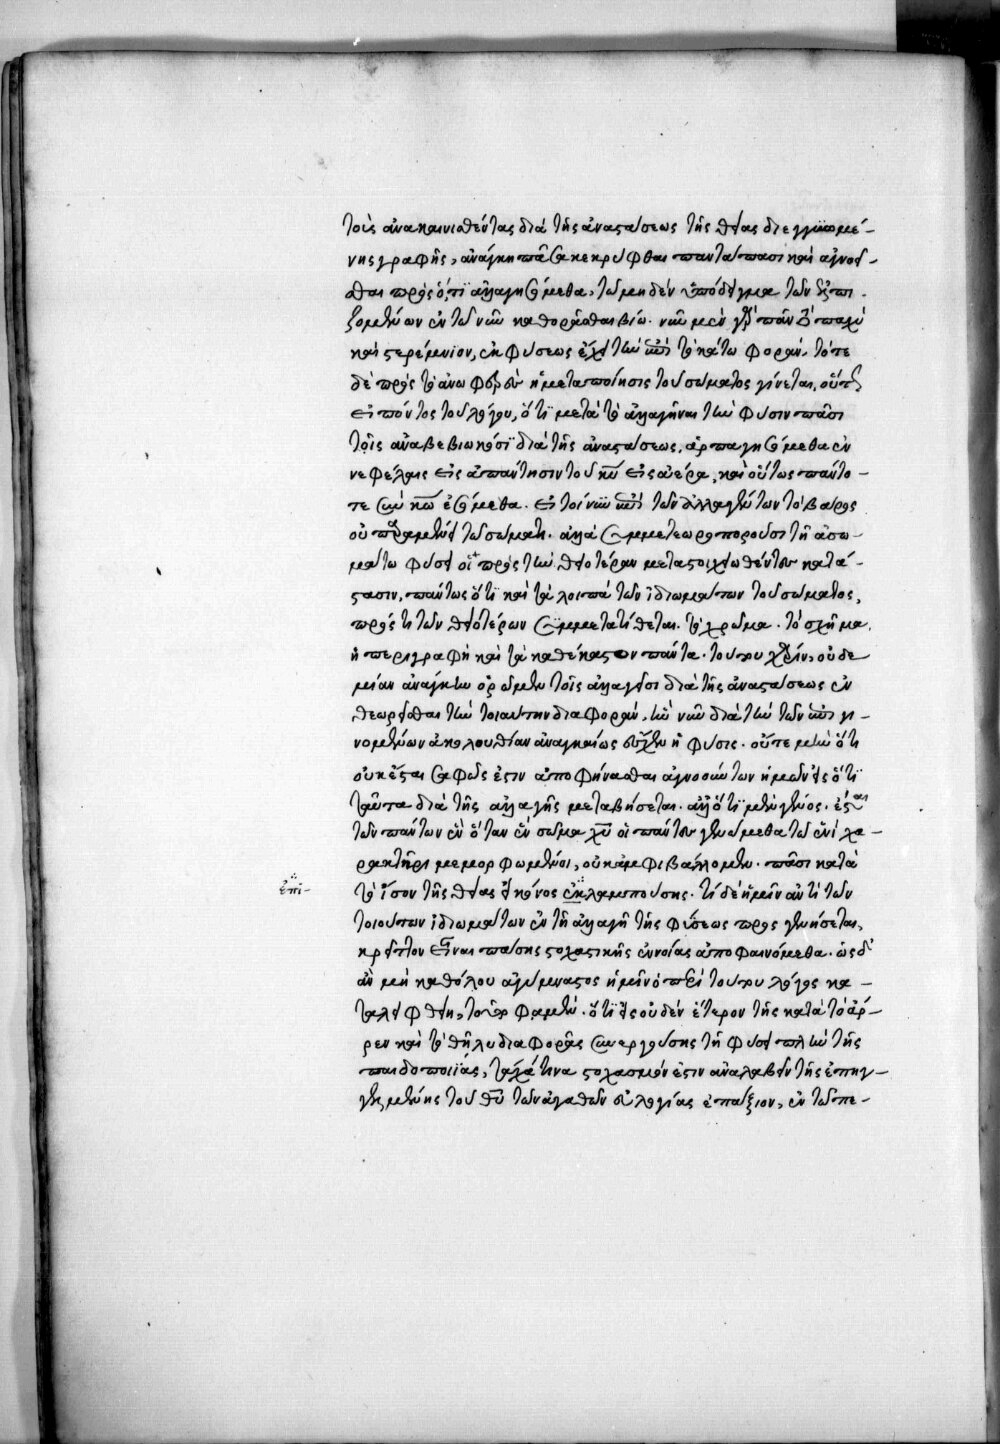 τοὺς ἀνακαινισθέντας διὰ τῆς ἀναστάσεως τῆς θείας διεγγυωμέ-
νης γραφῆς, ἀνάγκη πᾶσα κεκρύφθαι παντάπασι καὶ ἀγνοεῖ-
σθαι πρὸς ὅ,τι ἀλλαγησόμεθα, τῶ μηδὲν ὑπόδειγμα τῶν ἐλπι-
ζομένων ἐν τῶ νῦν καθορᾶσθαι βίω. νῦν μὲν γὰρ πᾶν τὸ παχὺ
καὶ στερέμνιον, ἐκ φύσεως ἔχει τὴν ἐπὶ τὸ κάτω φοράν. τότε
δὲ πρὸς τὸ ἀνωφερὲς ἡ μεταποίησις τοῦ σώματος γίνεται, οὕτως
εἰπόντος τοῦ λόγου, ὅτι μετὰ τὸ ἀλλαγῆναι τὴν φύσιν πᾶσι
τοῖς ἀναβεβιωκόσι διὰ τῆς ἀναστάσεως, ἁρπαγησόμεθα ἐν
νεφέλαις εἰς ἀπάντησιν τοῦ κυ εἰς ἀέρα, καὶ οὕτως πάντο-
τε σὺν κω ἐσόμεθα. εἰ τοίνυν ἐπὶ τῶν ἀλλαγέντων τὸ βάρος
οὐ παραμένει τῶ σώματι. ἀλλὰ συμμετεωροποροῦσι τῆ ἀσω-
μάτω φύσει οἱ πρὸς τὴν θειοτέραν μεταστοιχειωθέντες κατά-
στασιν, πάντως ὅτι καὶ τὰ λοιπὰ τῶν ἰδιωμάτων τοῦ σώματος,
πρός τι τῶν θειοτέρων συμμετατίθεται. τὸ χρῶμα. τὸ σχῆμα.
ἡ περιγραφὴ καὶ τὰ καθέκαστον πάντα. τούτου χάριν, οὐδε
μίαν ἀνάγκην ὁρῶμεν τοῖς ἀλλαγεῖσι διὰ τῆς ἀναστάσεως ἐν
θεωρεῖσθαι τὴν τοιαύτην διαφοράν, ἣν νῦν διὰ τὴν τῶν ἐπι γι-
νομένων ἀκολουθίαν ἀναγκαίως ἔσχεν ἡ φύσις. οὔτε μὴν ὅτι
οὐκ ἔσται σαφῶς ἐστιν ἀποφήνασθαι ἀγνοούντων ἡμῶν εἰς ὅτι
ταῦτα διὰ τῆς ἀλλαγῆς μεταβήσεται. ἀλλ' ὅτι μὲν γένος. ἔσται
τῶν πάντων ἓν ὅταν ἓν σῶμα χυ οἱ πάντες γενώμεθα τῶ ἑνὶ χα-
ρακτῆρι μεμορφωμένοι, οὐκ ἀμφιβάλλομεν. πᾶσι κατὰ
ἐπι- τὸ ἴσον τῆς θείας εἰκόνος ἐκλαμπούσης. τί δὲ ἡμῖν ἀντὶ τῶν
τοιούτων ἰδιωμάτων ἐν τῆ ἀλλαγῆ τῆς φύσεως προς γενήσεται,
κρεῖττον εἶναι πάσης στοχαστικῆς ἐννοίας ἀποφαινόμεθα. ὡς δ'
ἂν μὴ καθόλου ἀγύμναστος ἡμῖν ὁ περὶ τούτου λόγος κα-
ταλειφθείη, τοῦτο φαμέν. ὅτι εἰς οὐδὲν ἕτερον τῆς κατὰ τὸ ἄρ-
ρεν καὶ τὸ θῆλυ διαφορᾶς συνεργούσης τῆ φύσει πλὴν τῆς
παιδοποιΐας, τάχά τινα στοχασμόν ἐστιν ἀναλαβεῖν τῆς ἐπηγ-
γελμένης τοῦ θυ τῶν ἀγαθῶν εὐλογίας ἐπάξιον, ἐν τῶ πε-